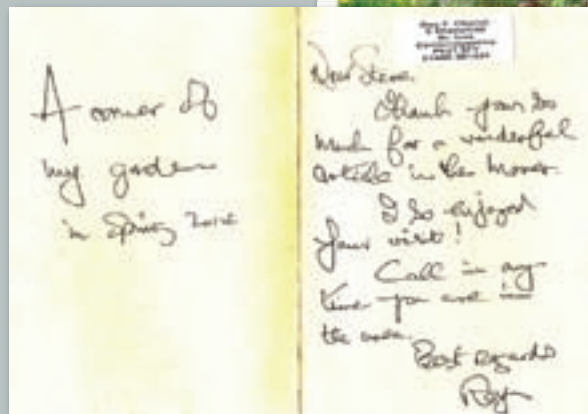 A corner of
my garden
in Spring
Dear Steve,
Thank you so
much for a wonderful
article in the
I so enjoyed
your visit!
Call in any
time you are in
the area.
Best regards